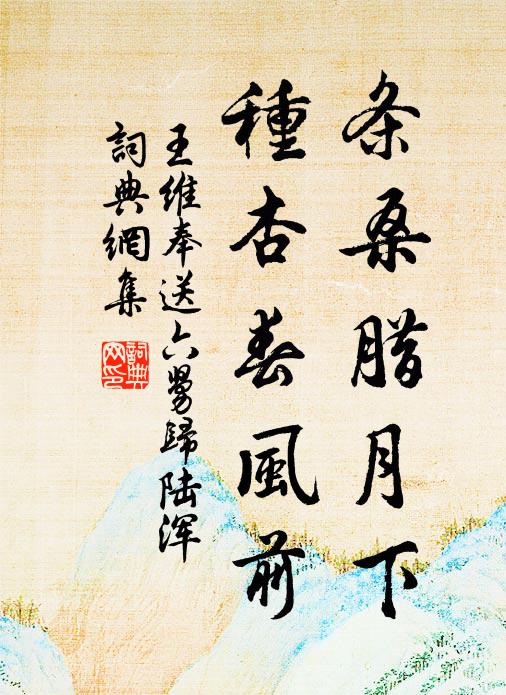 条桑腊月下
種杏春風前
王維奉送六舅歸陆浑
詞典網集
詞典网印